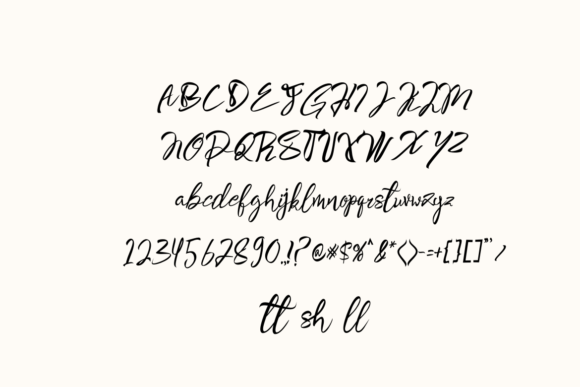 ABCDEFGHIJKLM
NOPQRSTUVXWXYZ
abcdefghijklmnopqrstuvwxyz
1234567890.,!? @#$%^&*<>-=+{}[]"/
tt sh ll